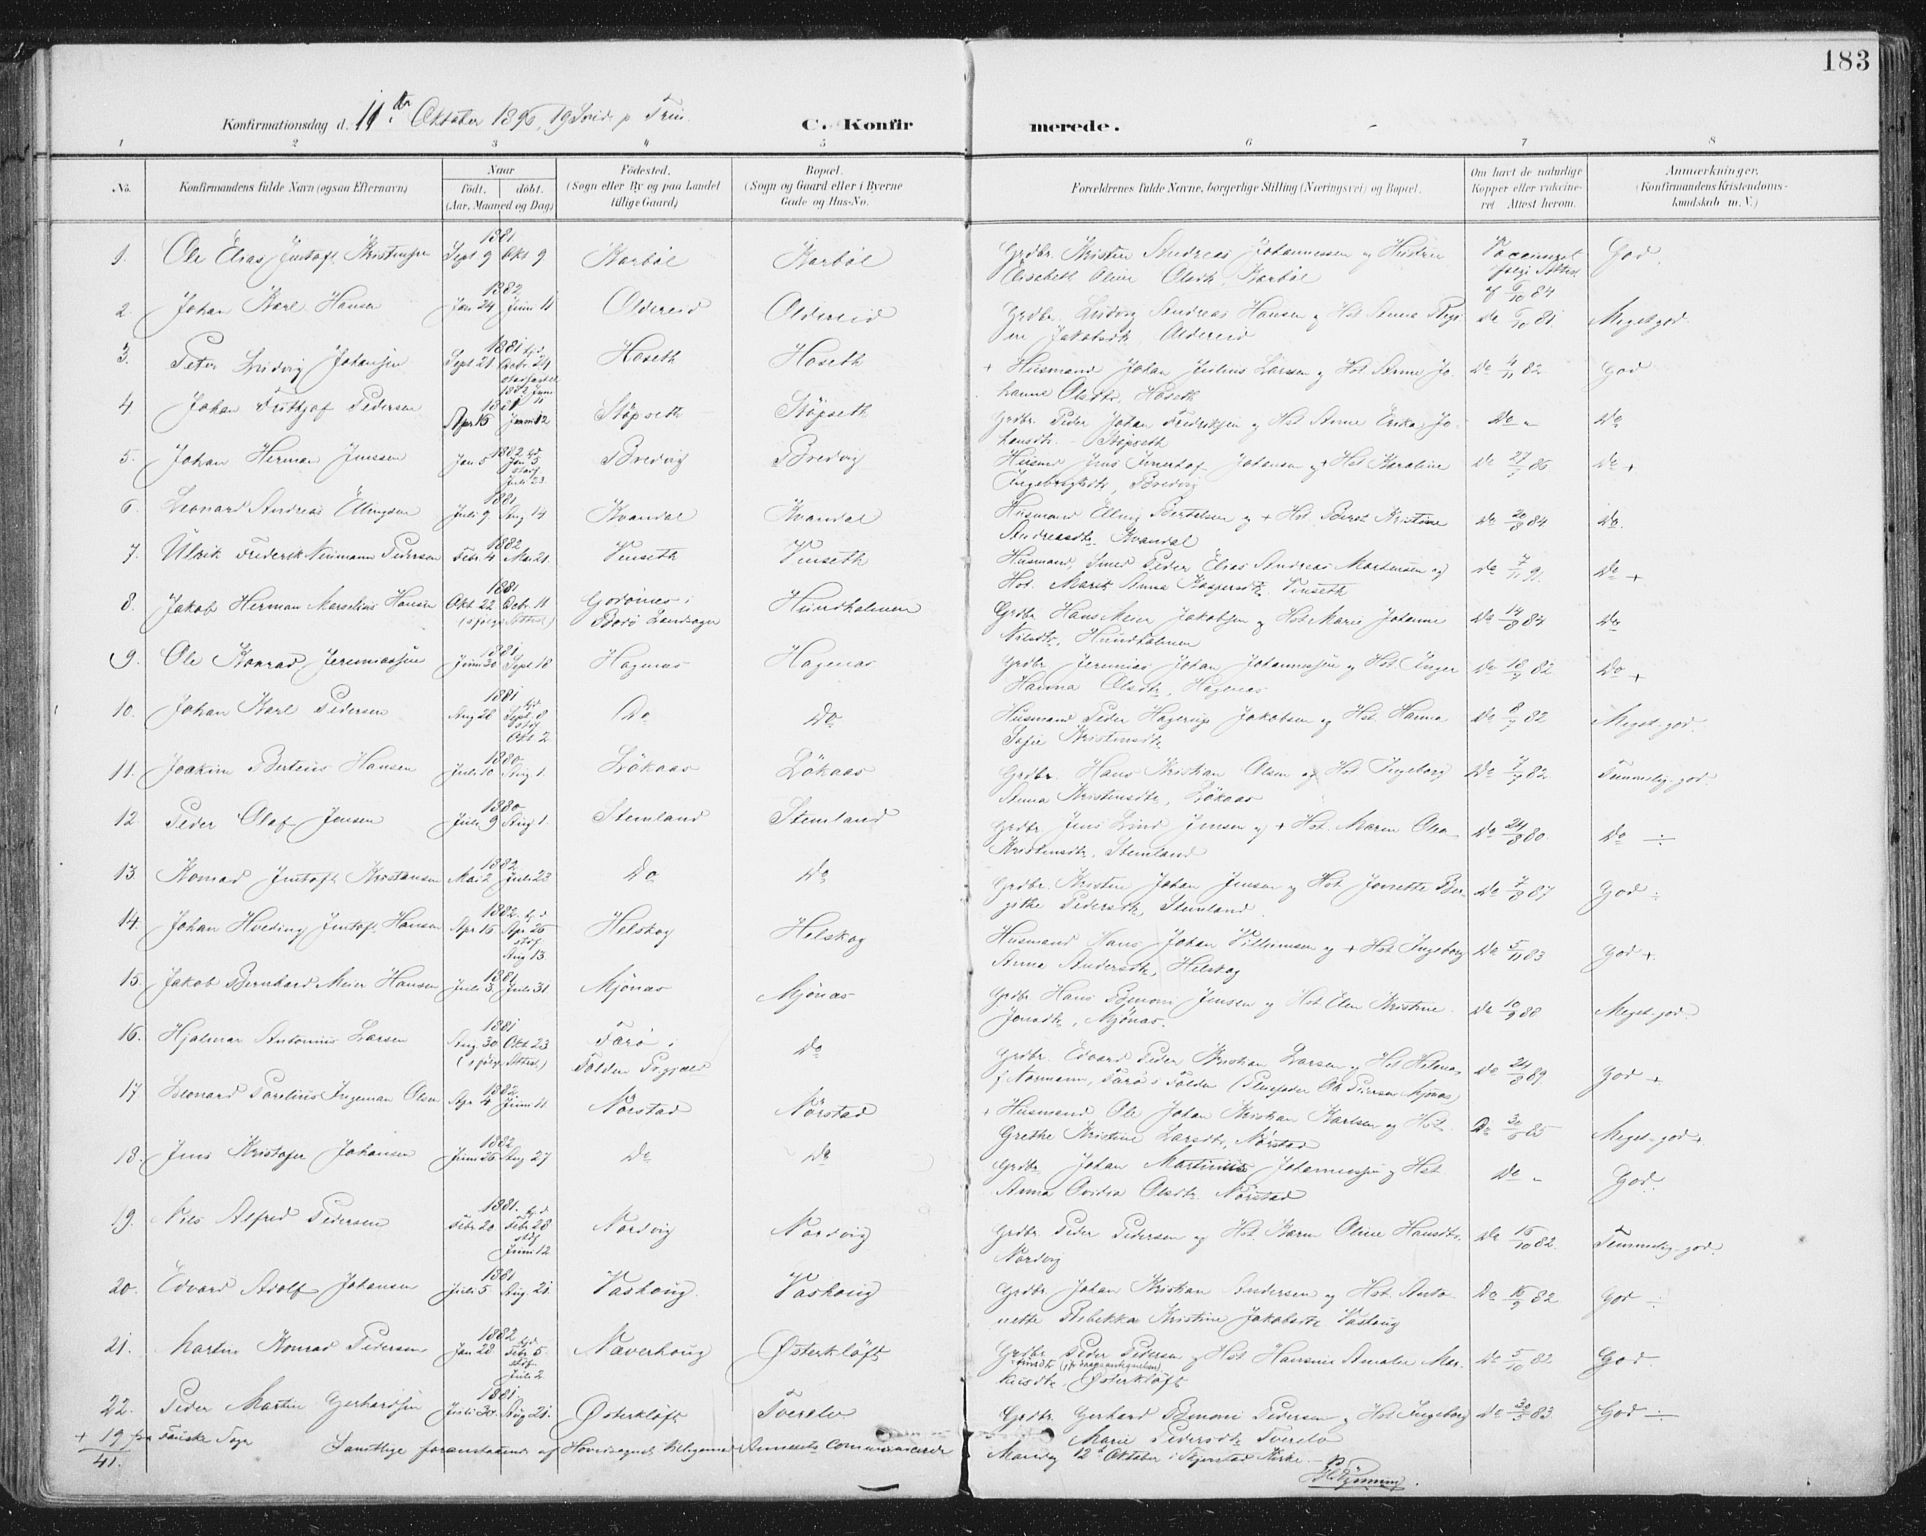 183
Konfirmationsdag d. 11te Oktober 1896, 19 Sønd. p. Trin.
C. Konfirmerede.
1 2 3 4 5 6 7 8
No. Konfirmandens fulde Navn (ogsaa Efternavn) Naar födt. döbt. (Aar, Maaned og Dag) Födested. (Sogn eller By og paa Landet tillige Gaard) Bopæl. (Sogn og Gaard eller i Byerne Gade og Hus-No. Forældrenes fulde Navne, borgerlige Stilling (Næringsvei) og Bopæl. Om havt de naturlige Kopper eller vakcineret. Attest herom. Anmærkninger. (Konfirmandens Kristendomskundskab m. V.)
1. Ole Elias Jentoft Kristensen 1881 Sept 9 Okt. 9 Karbøl Karbøl Grdbr. Kristen Andreas Johannessen og Hustru Vaccineret God.
Elisabeth Oline Olsdtr., Karbøl ifølge Attest af 6/10 84
2. Johan Karl Hansen 1882 Jan 24 Juni 11 Oldereid Oldereid Grdbr. Ludvig Andreas Hansen og Hst. Anna Do 6/10 81 Meget god.
Jakobsdtr., Oldereid
3. Peter Ludvig Johansen 1881 Sept 21 hjd. Octbr. 24 stadfæstet 1882 Juni 11 Hoseth Hoseth + Husmand Johan Julius Larsen og Hst. Anne Jo- Do 4/11 82 God
hanna Olsdtr., Hoseth
4 Johan Frithjof Pedersen 1881 Apr 15 Juni 12 Støpseth Støpseth Grdbr. Peder Johan Fredriksen og Hst. Anne Erika Jo- Do - Do
hansdtr. - Støpseth
5. Johan Herman Jensen 1882 Jan 5 hjd. Jan 5 stadf Juli 23 Bredvig Bredvig Husmd Jens Johansen og + Hst. Karoline Do 27/ 86 Do +
Ingebrigtsdtr., Bredvig
6. Leonard Andreas Ellingsen 1881 Juli 9 Aug 14 Kvandal Kvandal Husmand Elling Bertelsen og + Hst. Berit Kristine Do 20/8 84 Do.
Andreasdtr. Kvandal
7. Ulrik Frederik Neumann Pedersen 1882 Febr. 4 Mai 21. Vinseth Vinseth Husmand, Smed Peder Elias Andreas Mortensen og Do 7/11 91. Do +
Hst. Marit Anna Kaspersdtr. Vinseth
8. Jakob Herman Marselius Hansen 1881 Okt. 22 Decbr. 11 (ifølge Attest) Godønes i Bodø Landsogn Hundholmen Grdbr. Hans Meier Jakobsen og Hst. Marie Johanne Do 14/8 84 Do
Nilsdtr., Hundholmen
9. Ole Konrad Jeremiassen 1881 Juni 30 Sept. 18 Hagenæs Hagenæs Grdbr. Jeremias Johan Johannessen og Hst. Inger Do 18/9 82 Do +
Hanna Olsdtr., Hagenæs
10. Johan Karl Pedersen 1881 Aug 28 hjd Sept. 8 stadf Okt. 2 Do Do Husmand Peder Hagerup Jakobsen og Hst. Hanna Do 8/9 82 Meget god.
Sofie Kristensdtr.
11. Joakim Berteus Hansen 1880 Juli 10 Aug 1. Løkaas Løkaas Grdbr. Hans Kristian Olsen og Hst. Ingeborg Do 7/9 82 Temmelig god.
Anna Kristensdtr., Løkaas
12. Peder Olaf Jensen 1880 Juli 9 Aug 1. Stemland Stemland Grdbr. Jens Lind Jensen og + Hst. Maren Oline Do 24/8 80. Do ÷
Kristensdtr., Stemland
13. Konrad Jentoft Kristensen 1882 Mai 2 Juli 23 Do Do Grdbr. Kristen Johan Jensen og Hst. Jonette Ber- Do 7/8 87 God ÷
githe Pedersdtr., Stemland.
14. Johan Hveding Jentoft Hansen 1882. Apr 16 hjd Apr 25 stadf Aug 13. Helskog Helskog Husmand Hans Johan Villumsen og + Hst. Ingeborg Do 5/11 83 God +
Anna Andersdtr., Helskog
15. Jakob Bernhard Meier Hansen 1881 Juli 3. Juli 31. Mjønæs Mjønæs Grdbr. Hans Benoni Jensen og Hst. Elen Kristine Do 10/9 88 Meget god.
Jonsdtr., Mjønæs.
16. Hjalmar Antonius Larsen 1881 Aug 30 Okt 23 (ifølge Attest) Farø i Folden Do Grdbr. Edvard Peder Kristian Larsen og Hst. Helena Do 24/8 89 God +
f. Normann, Farø i Folden (Pleiefader Ole Pedersen Mjønæs)
17. Leonard Parelius Ingeman Olsen 1882. Apr 4 Juni 11. Nørstad Nørstad + Husmand Ole Johan Kristian Karlsen og Hst. Do 30/ 85 Meget god +
Grethe Kristine Larsdtr., Nørstad
18. Jens Kristofer Johansen 1882 Juni 25 Aug 27 Do Do Grdbr. Johan Martinus Johannessen og Hst. Do - God.
Anna Ovidia Olsdtr. Nørstad
19. Nils Alfred Pedersen 1881. Febr 20 hjd Febr 28 stadf Juni 12 Nordvig Nordvig Grdbr. Peder Pedersen og Hst. Karen Oline Hansdtr. Do 16/10 82. Temmelig god.
Nordvig
20. Edvard Adolf Johansen 1881 Juli 5 Aug 21. Vashoug. Vashoug Grdbr. Johan Kristian Andersen og Hst. Anto- Do 15/9 82 God ÷
nette Rebekka Kristine Jakobsdtr. Vashoug
21. Martin Konrad Pedersen 1882 Jan 28 hjd Febr 5. stadf Juli 2. Næverhoug Østerkløft Grdbr. Peder Pedersen og Hst. Hansine Amalie Mar- Do 5/10 82 God.
kusdtr. Østerkløft
22. Peder Martin Gerhardsen 1881. Juli 30. Aug 21. Østerkløft Tverelv Grdbr. Gerhard Benoni Pedersen og Hst. Ingeborg Do 30/5 83. God ÷
Marie Pedersdtr. Tverelv
+ 19 fra Fauske Sogn Samtlige foranstaaende af Hovedsognet tilligemed Annexets communicerede Mandag 12te Oktober i Skjerstad Kirke.
41.